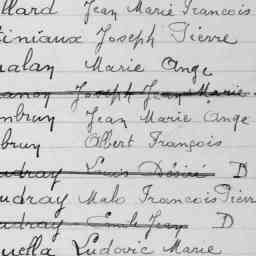 llard Jean Marie Francois
tiniaux Joseph Pierre
alan Marie Ange
anon Joseph Jean Marie
mbruy Jean Marie Ange
bruy Albert François
udray Louis Désiré D
udray Malo Francois Pierr
udray Emile Jean D
uella Ludovic Marie